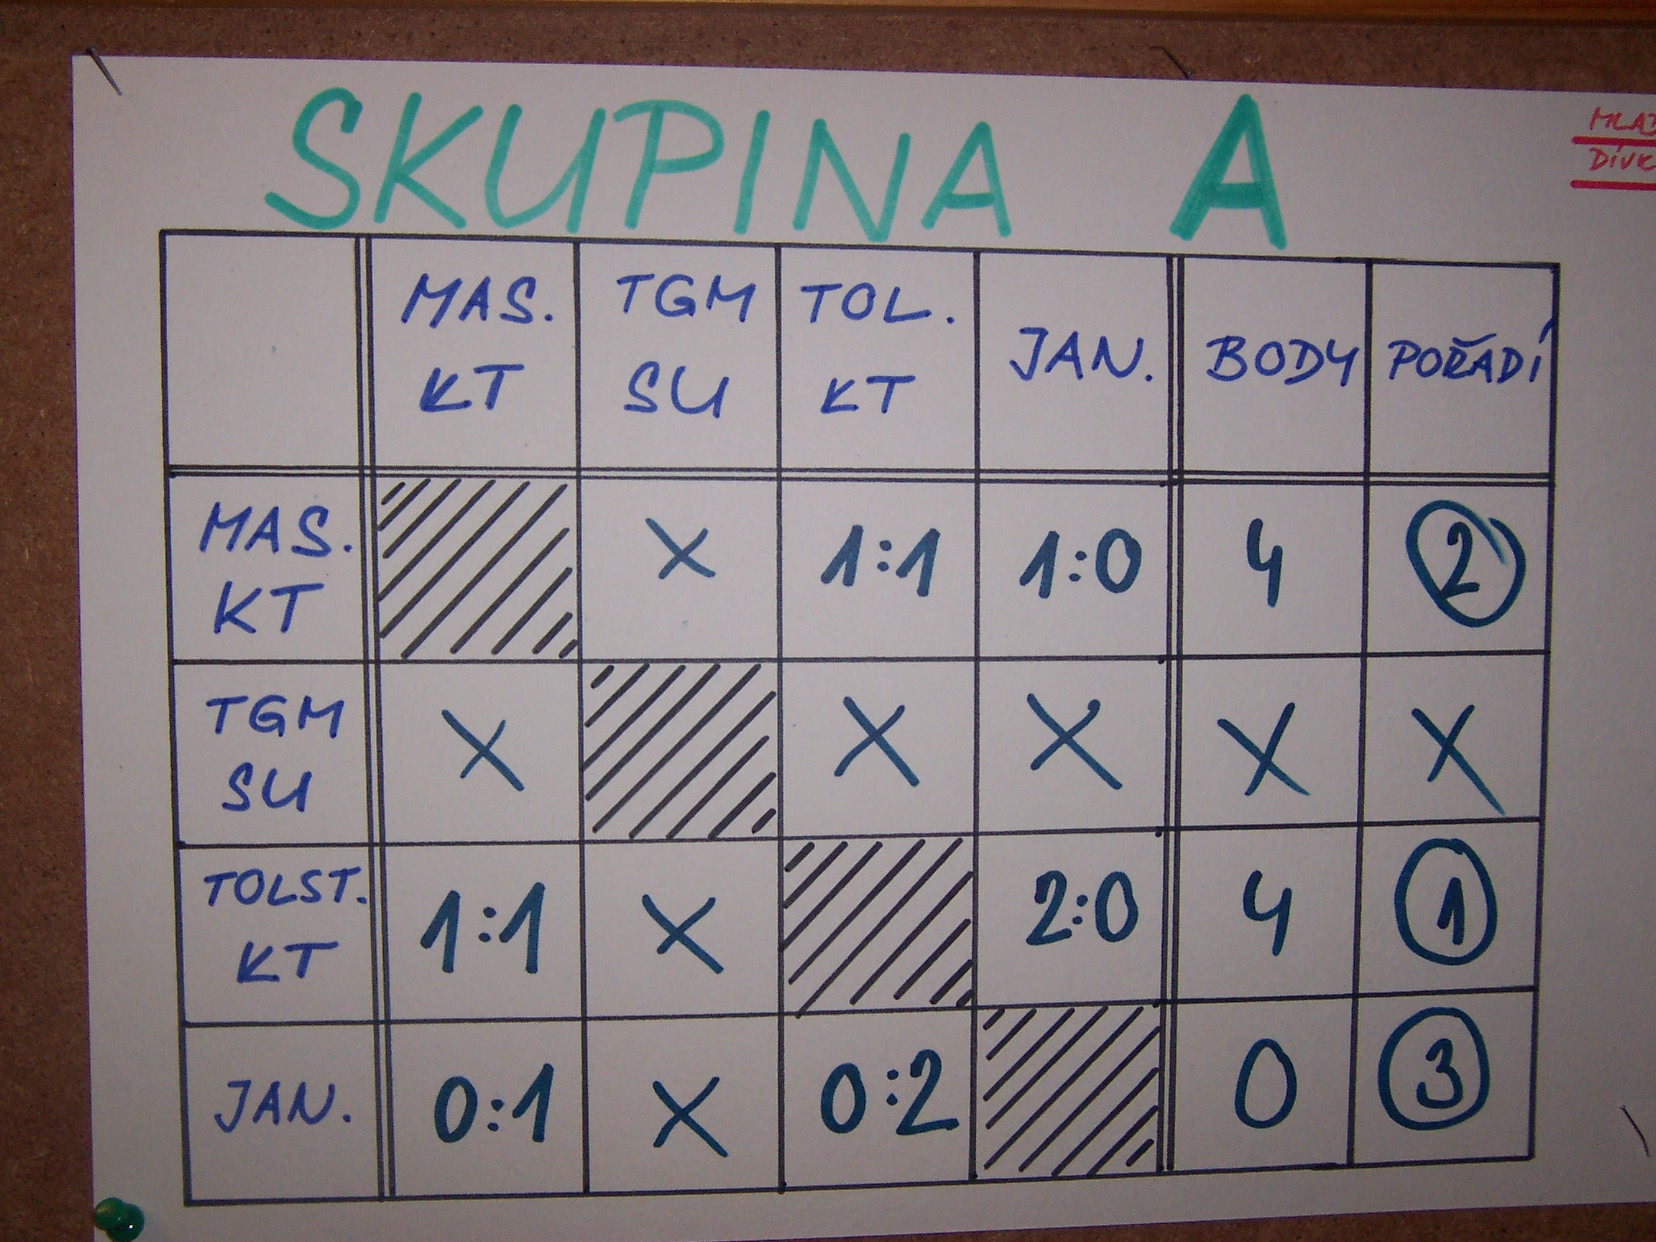 SKUPINA A
MAS. KT TGM SU TOL. KT JAN. BODY POŘADÍ
MAS. KT X 1:1 1:0 4 2
TGM SU X X X X X
TOLST. KT 1:1 X 2:0 4 1
JAN. 0:1 X 0:2 0 3